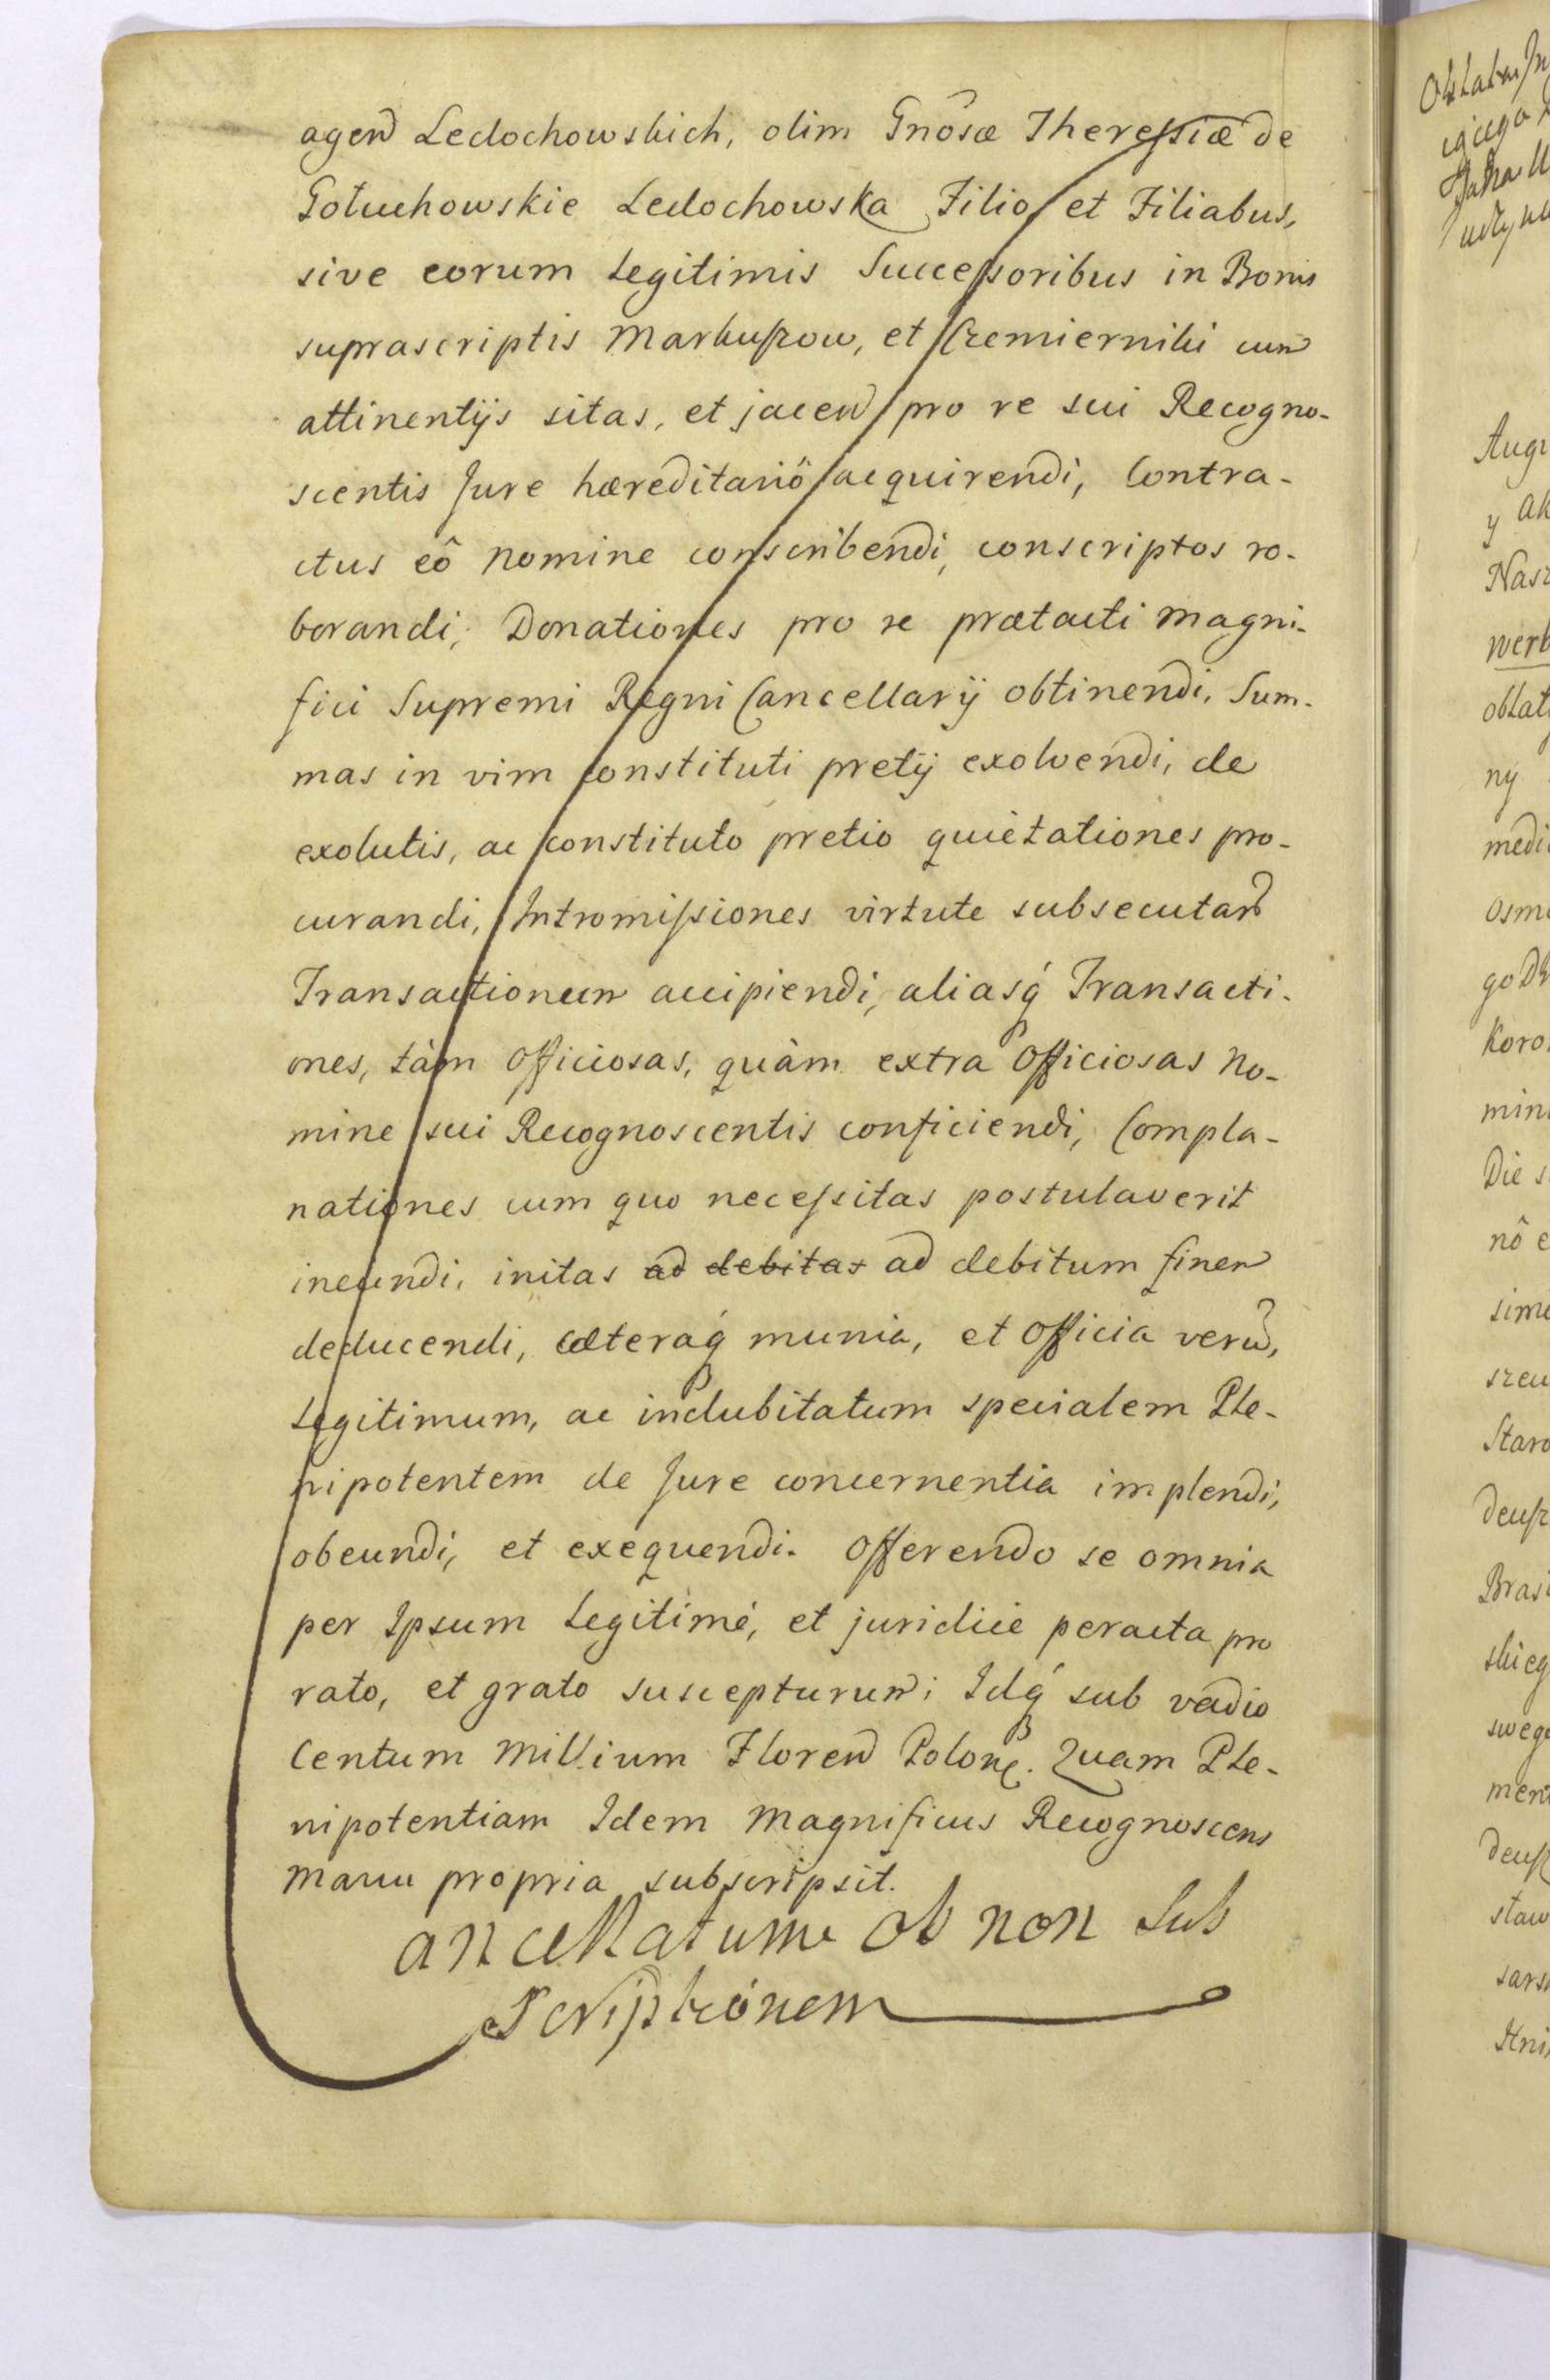 agen Ledochowskich, olim Gnosæ Theressiæ de
Gołuchowskie Ledochowska Filio, et Filiabus,
sive eorum Legitimis Successoribus in Bonis
suprascriptis Markuszow, et Czemierniki cum
attinentijs sitas, et jacen pro re sui Recogno-
scentis Jure hæreditariô acquirendi, Contra-
ctus eô nomine conscribendi, conscriptos ro-
borandi, Donationes pro se prætacti Magni-
fici Supremi Regni Cancellarij obtinendi, Sum-
mas in vim constituti pretij exolvendi, de
exolutis, ac constituto pretio quiètationes pro-
curandi, Intromissiones virtute subsecutar
Transactionum accipiendi, aliasq́ Transacti-
ones, tàm Officiosas, quàm extra Officiosas no-
mine sui Recognoscentis conficiendi, Compla-
nationes cum quo necessitas postulaverit
ineundi, initas ad debitas ad debitum finem
deducendi, cæteraq́ munia, et Officia verũ,
Legitimum, ac indubitatum specialem Ple-
nipotentem de Jure concernentia implendi,
obeundi, et exequendi. Offerendo se omnia
per Ipsum Legitimè, et juridicè peracta pro
rato, et grato suscepturum; Idq́ sub vadio
Centum Millium Floren Polon. Quam Ple-
nipotentiam Idem Magnificus Recognoscens
Manu propria subscripsit.
ancellatum ob non Sub
Scriptionem
Augu
y
Nasz
werb
oblat
ny
medi
osme
go
Koro
mini
Die s
nô e
sime
szeu
Staro
Brasi
skieg
swego
staw